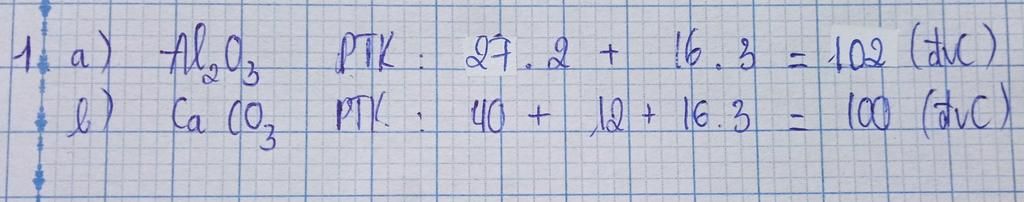 1. a) Al₂O₃ PTK: 27.2 + 16.3 = 102 (đvC)
b) CaCO₃ PTK: 40 + 12 + 16.3 = 100 (đvC)